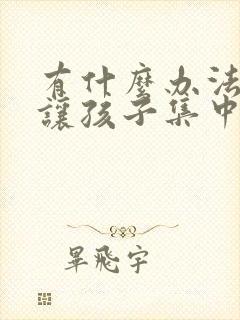 有什麼办法
讓孩子集中
畢飛宇